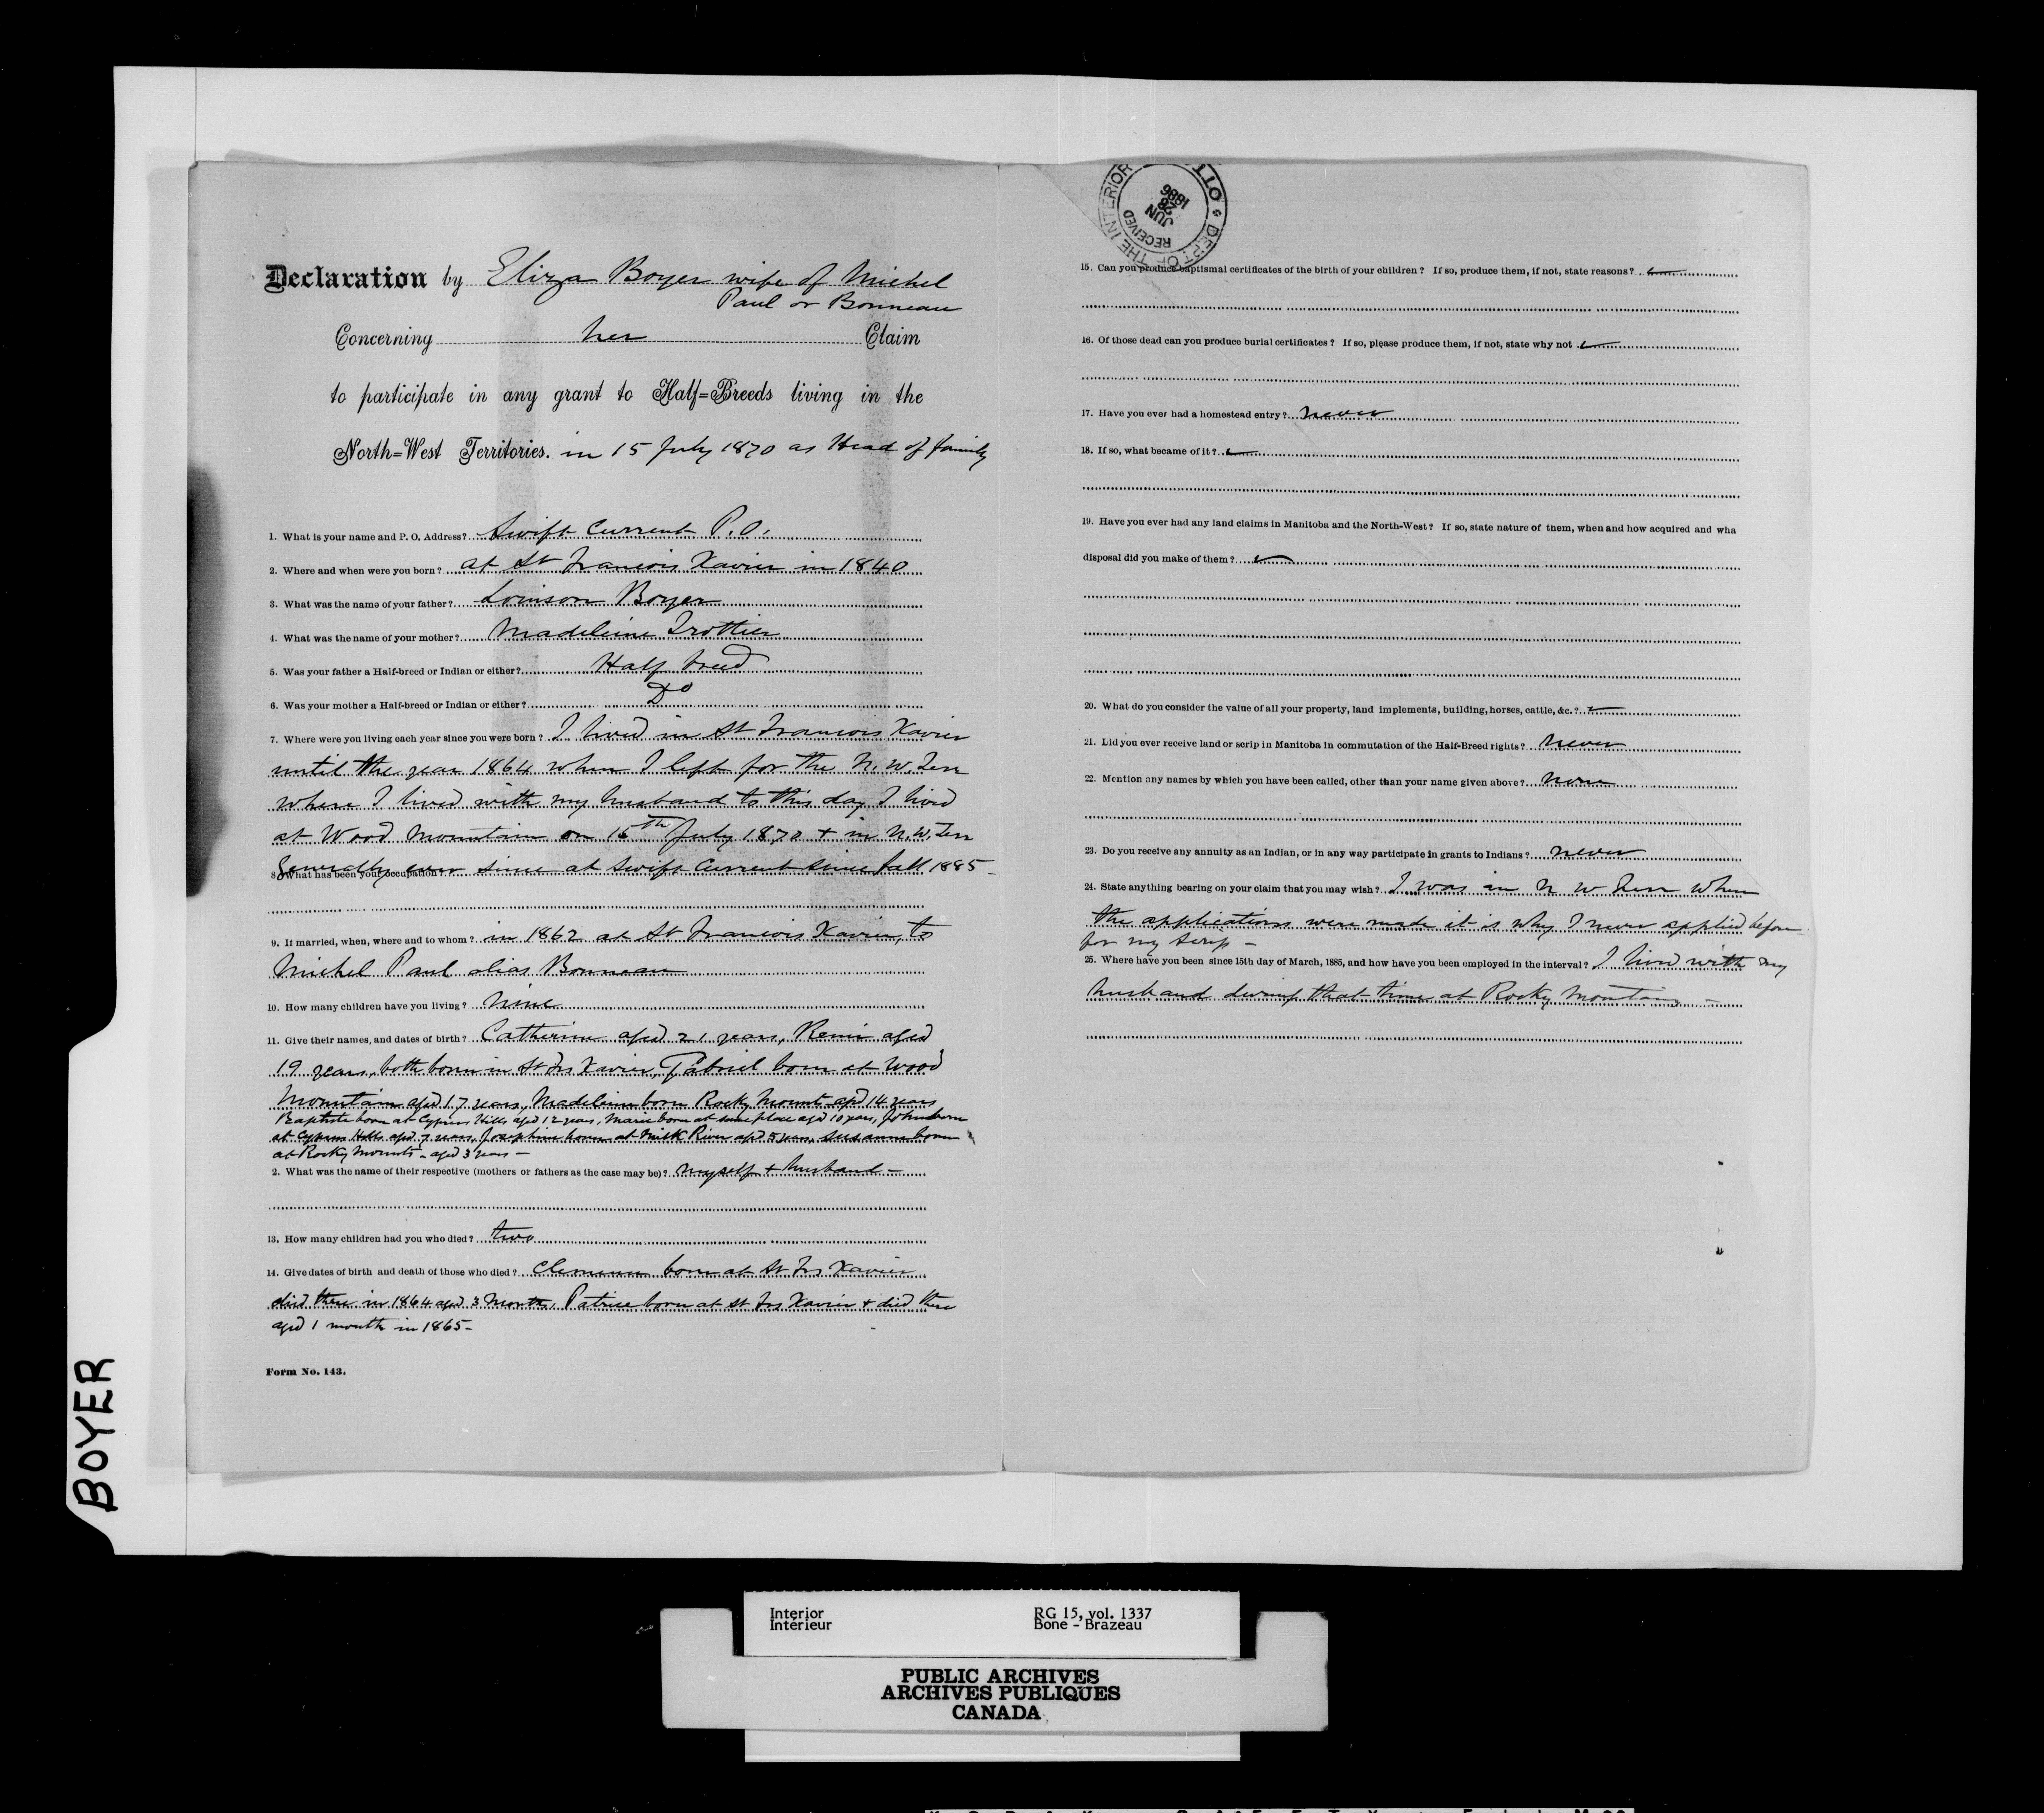 Declaration by Eliza Boyer wife of Michel
Paul or Bonneau
Concerning her Claim
to participate in any grant to Half=Breeds living in the
North=West Territories. in 15 July 1870 as Head of family
1. What is your name and P. O. Address? Swift Current P.O.
2. Where and when were you born? at St Francois Xavier in 1840
3. What was the name of your father? Louison Boyer
4. What was the name of your mother? Madeleine Trottier
5. Was your father a Half-breed or Indian or either? Half breed
6. Was your mother a Half-breed or Indian or either? Do
7. Where were you living each year since you were born? I lived in St Francois Xavier
until the year 1864 when I left for the N. W. Terr
where I lived with my husband to this day I lived
at Wood Mountain on 15th July 1870 + in N. W. Terr
generally ever since at Swift Current since fall 1885
8. What has been your occupation
9. If married, when, where and to whom? in 1862 at St Francois Xavier, to
Michel Paul alias Bonneau
10. How many children have you living? Nine
11. Give their names, and dates of birth? Catherine aged 21 years, Remi aged
19 years, both born in St Frs Xavier, Gabriel born at Wood
Mountain aged 17 years, Madeleine born Rocky Mount. aged 14 years
Baptiste born at Cypress Hills aged 12 years, Marie born at same place aged 10 years, John born
at Cypress Hills aged 7 years, Josephine born at Milk River aged 5 years, Susanne born
at Rocky Mounts - aged 3 years -
2. What was the name of their respective (mothers or fathers as the case may be)? myself + husband -
13. How many children had you who died? two
14. Give dates of birth and death of those who died? Clemence born at St Frs Xavier
died there in 1864 aged 3 months, Patrice born at St Frs Xavier + died there
aged 1 month in 1865 -
Form No. 143.
DEPT OF THE INTERIOR OTT
RECEIVED
JUN
28
1886
15. Can you produce baptismal certificates of the birth of your children? If so, produce them, if not, state reasons?
16. Of those dead can you produce burial certificates? If so, please produce them, if not, state why not
17. Have you ever had a homestead entry? never
18. If so, what became of it?
19. Have you ever had any land claims in Manitoba and the North-West? If so, state nature of them, when and how acquired and wha
disposal did you make of them?
20. What do you consider the value of all your property, land implements, building, horses, cattle, &c.?
21. Did you ever receive land or scrip in Manitoba in commutation of the Half-Breed rights? never
22. Mention any names by which you have been called, other than your name given above? none
23. Do you receive any annuity as an Indian, or in any way participate in grants to Indians? never
24. State anything bearing on your claim that you may wish? I was in N W Terr when
the applications were made it is why I never applied before
for my scrip -
25. Where have you been since 15th day of March, 1885, and how have you been employed in the interval? I lived with my
husband during that time at Rocky Mountains -
BOYER
Interior RG 15, vol. 1337
Intérieur Bone - Brazeau
PUBLIC ARCHIVES
ARCHIVES PUBLIQUES
CANADA